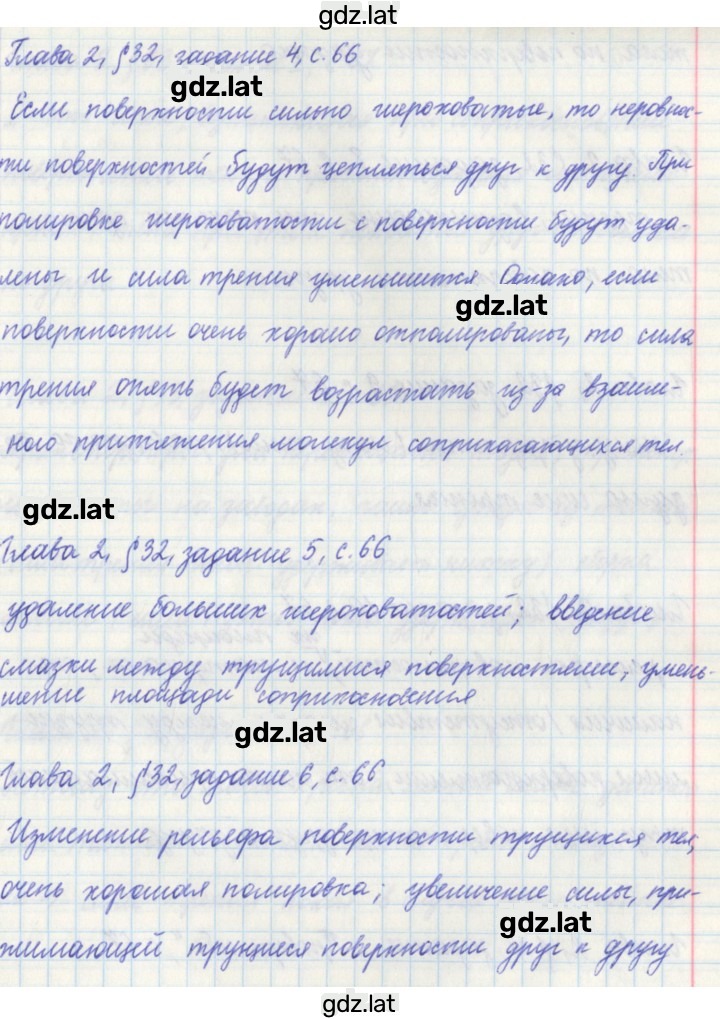 gdz.lat
Глава 2, §32, задание 4, с. 66
gdz.lat
Если поверхности сильно шероховатые, то неровнос-
ти поверхностей будут цепляться друг к другу. При
полировке шероховатости с поверхности будут уда-
лены и сила трения уменьшится Однако, если
gdz.lat
поверхности очень хорошо отполированы, то сила
трения опять будет возрастать из-за взаим-
ного притяжения молекул соприкасающихся тел.
gdz.lat
Глава 2, §32, задание 5, с. 66
удаление больших шероховатостей; введение
смазки между трущимися поверхностями; умень-
шение площади соприкосновения
gdz.lat
Глава 2, §32, задание 6, с. 66
Изменение рельефа поверхности трущихся тел,
очень хорошая полировка; увеличение силы, при-
gdz.lat
жимающей трущиеся поверхности друг к другу
gdz.lat